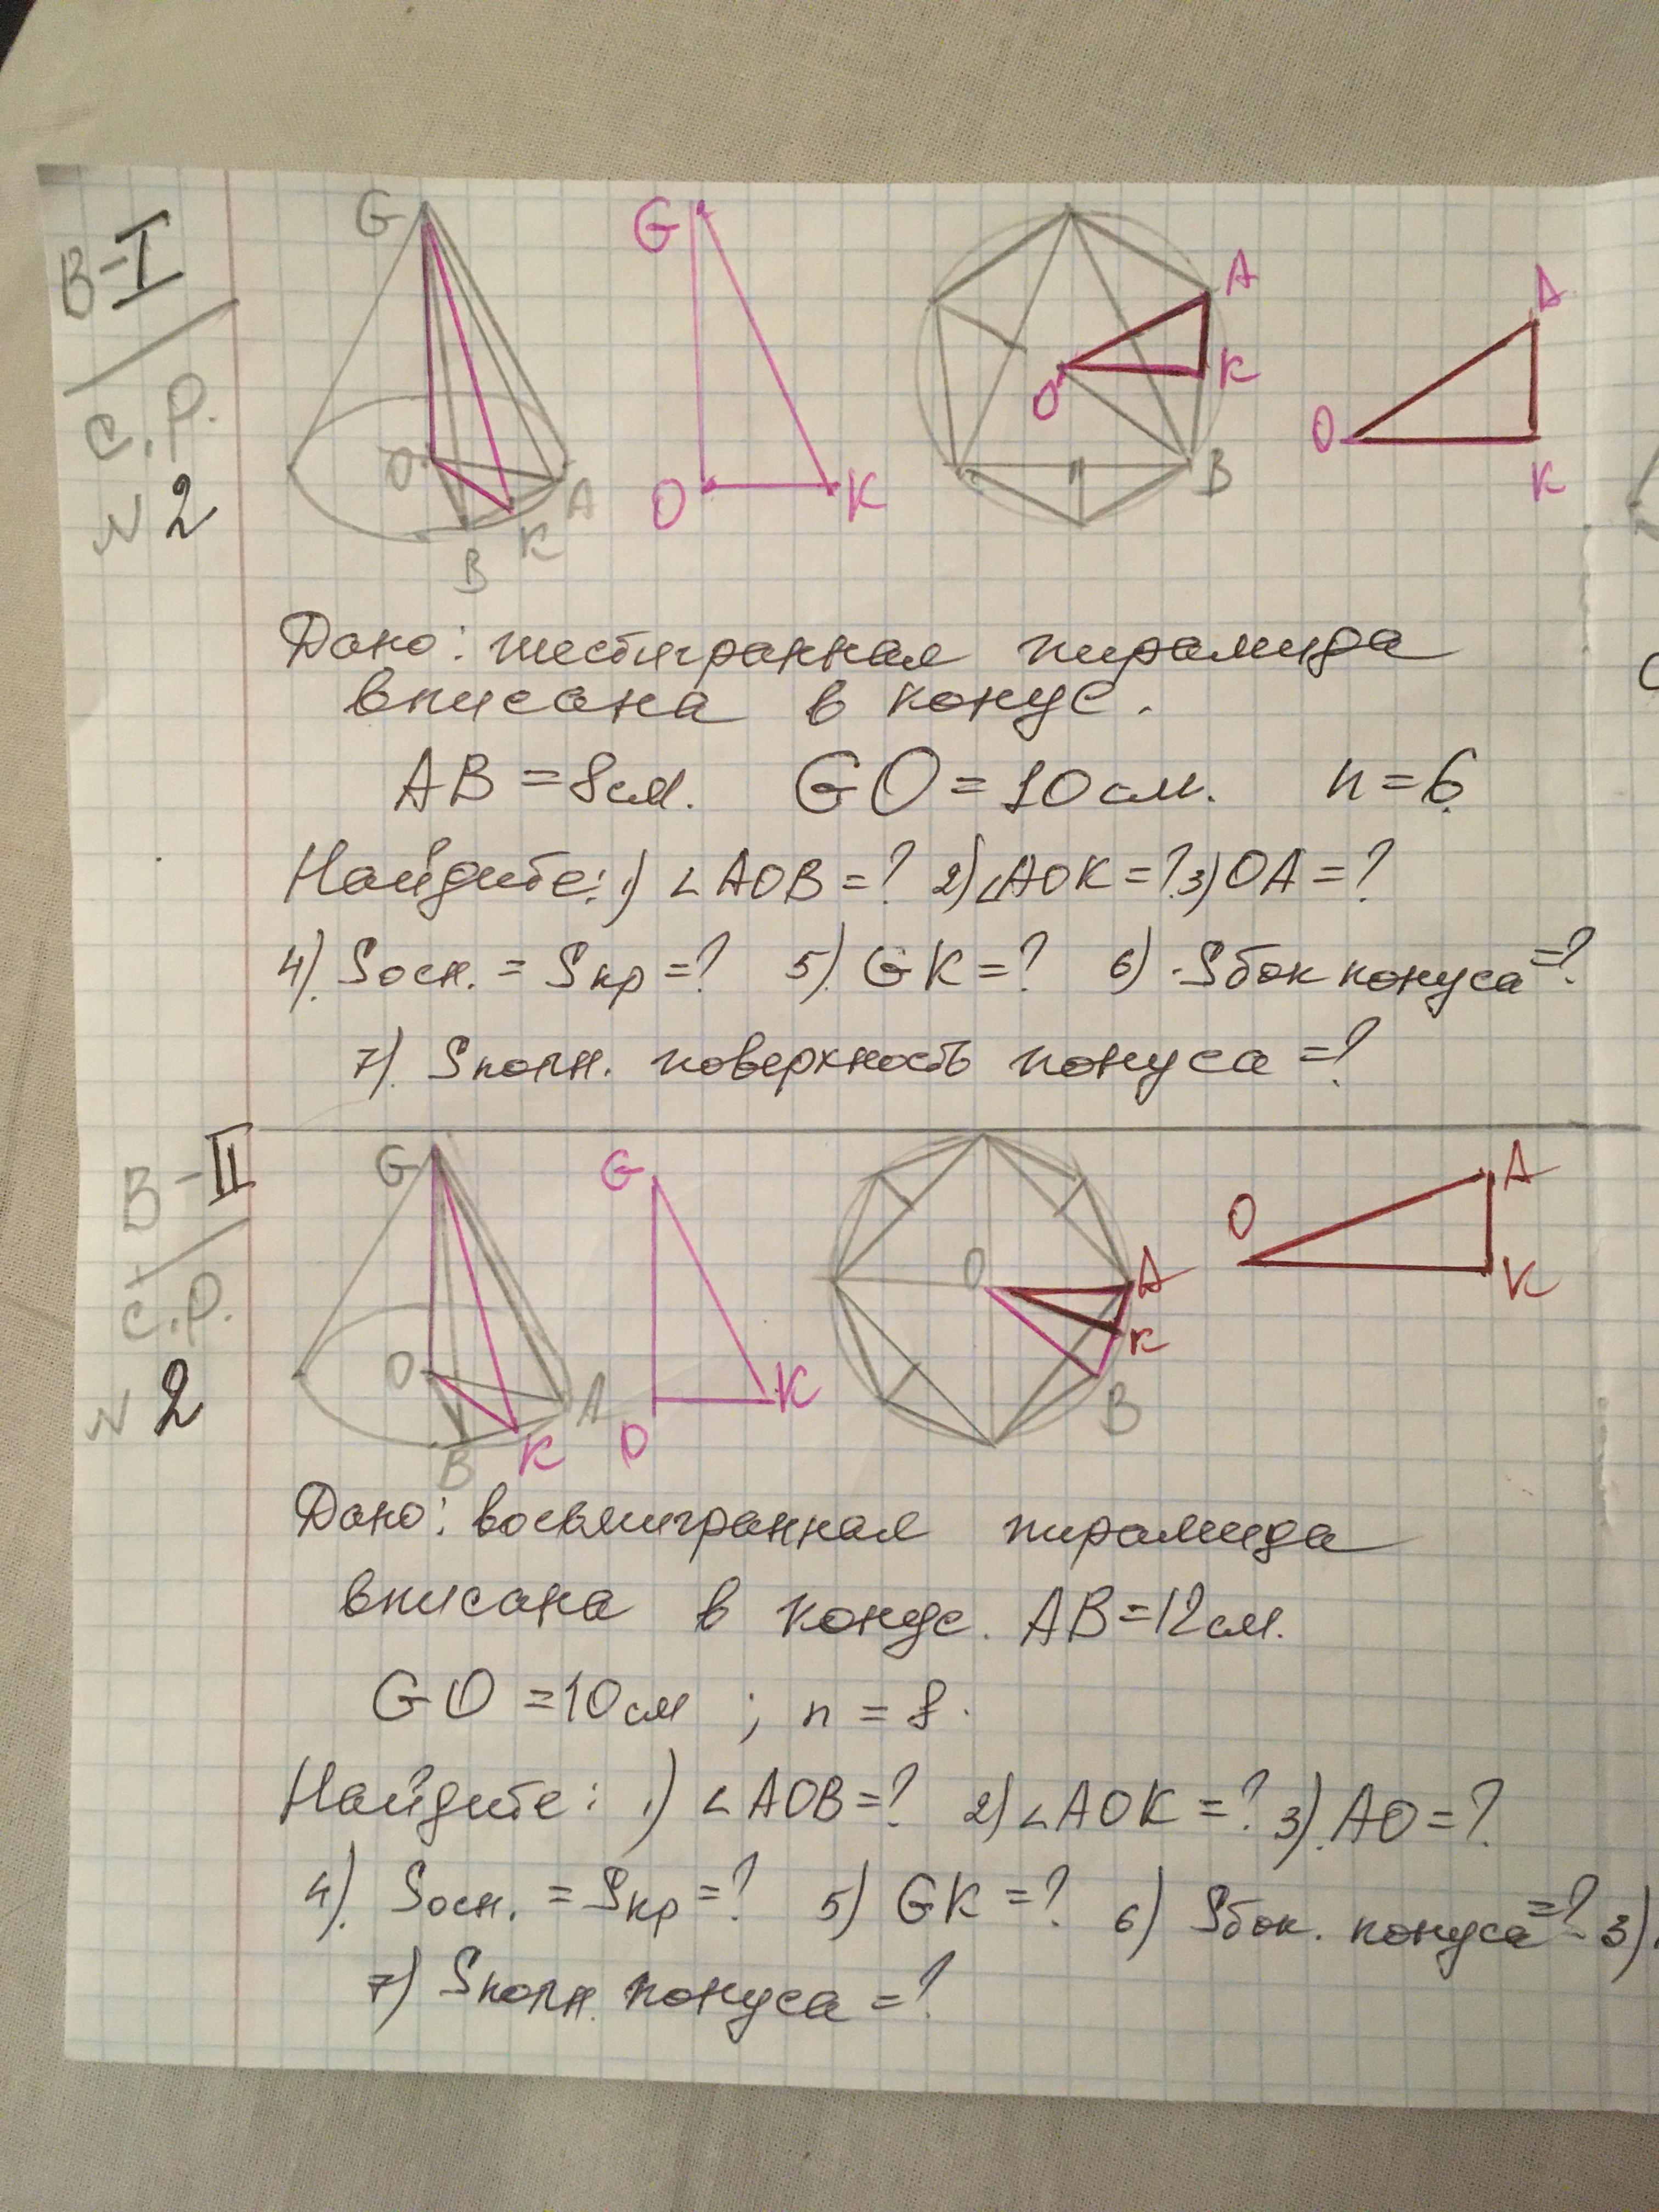 В-I
С.Р.
N 2
G
O
A
K
B
G
O
K
A
K
O
B
A
O
K
Дано: шестигранная пирамида
вписана в конус.
AB = 8см. GO = 10 см. n = 6
Найдите: 1) ∠AOB = ? 2) ∠AOK = ? 3) OA = ?
4). Sосн. = Sкр = ? 5). GK = ? 6) Sбок конуса = ?
7). Sполн. поверхность конуса = ?
В-II
С.Р.
N 2
G
O
A
K
B
G
O
K
O
A
K
B
O
A
K
Дано: восьмигранная пирамида
вписана в конус. AB = 12 см.
GO = 10 см ; n = 8.
Найдите: 1) ∠AOB = ? 2) ∠AOK = ? 3). AO = ?
4). Sосн. = Sкр = ? 5) GK = ? 6) Sбок. конуса = ? 3)
7) Sполн. конуса = ?